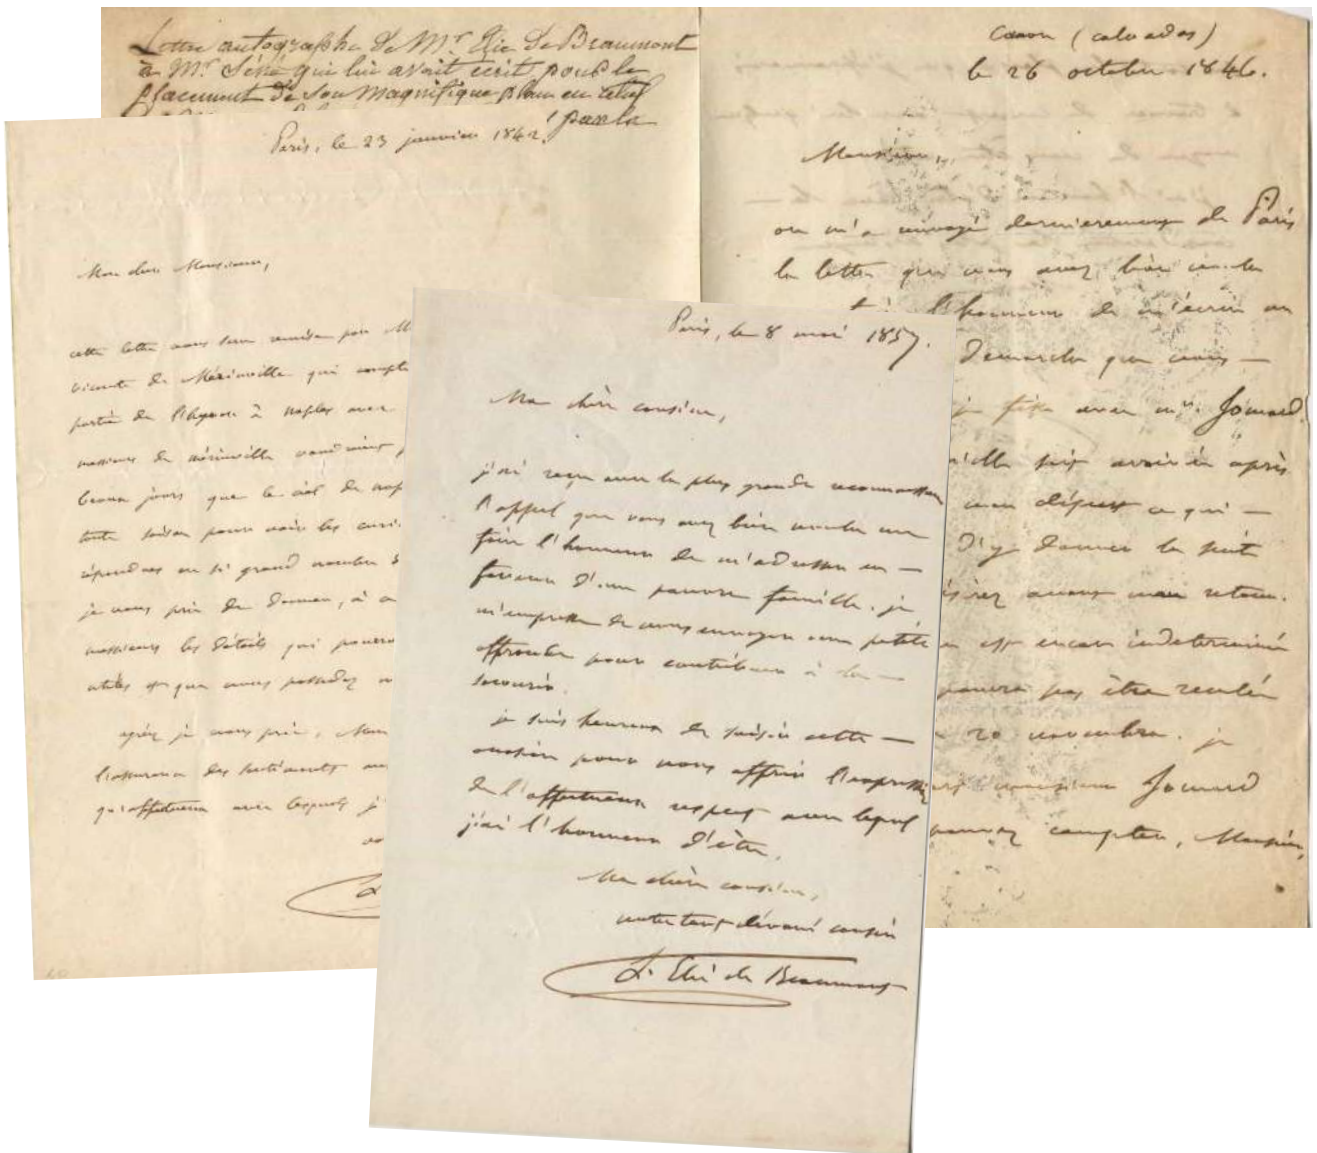 Lettre autographe de Mr Elie de Beaumont
à Mr Séné qui lui avait écrit pour le
placement de son magnifique plan en relief
par la
Paris, le 23 janvier 1842.
Mon cher Monsieur,
cette lettre vous sera remise par M
vicomte de Mérinville qui compte
partie de l'hyver à naples avec
messieurs de mérinville
beaux jours que le ciel de nap
toute saison pour voir les curi
répandues en si grand nombre
je vous prie de donner, à
messieurs les détails qui pourro
utiles et que vous possédez
agréez je vous prie, Mon
l'assurance des sentiments
qu'affectueux avec lesquels j'
Canon (calvados)
le 26 octobre 1846.
Monsieur,
on m'a envoyé dernièrement de Paris
la lettre que vous avez bien voulu
l'honneur de m'écrire au
démarche que vous
je fisse avec mr. Jomard.
qu'elle soit arrivée après
mon départ ce qui
d'y donner la suite
avant mon retour.
est encore indéterminé
pourra pas être reculée
20 novembre. je
monsieur Jomard
pouvez compter, Monsieur,
Paris, le 8 mai 1857.
Ma chère cousine,
j'ai reçu avec la plus grande reconnaissance
l'appel que vous avez bien voulu me
faire l'honneur de m'adresser en
faveur d'une pauvre famille. je
m'empresse de vous envoyer une petite
offrande pour contribuer à la
secourir.
je suis heureux de saisir cette
occasion pour vous offrir l'expression
de l'affectueux respect avec lequel
j'ai l'honneur d'être,
Ma chère cousine,
votre tout dévoué cousin
L. Elie de Beaumont